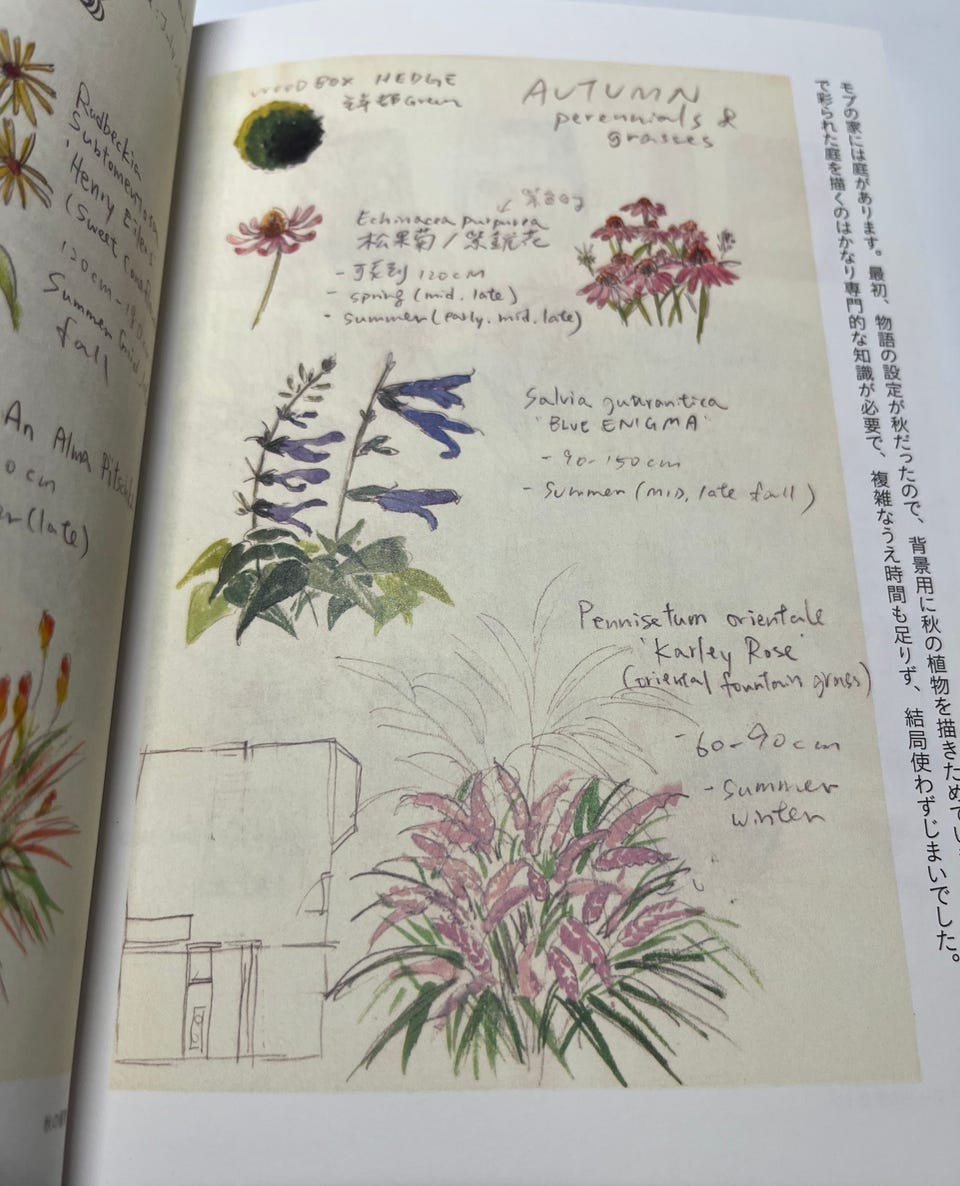 Rudbeckia
Subtomentosa
'Henry Eilers'
(Sweet
120cm-180cm
Summer (mid
fall
An Alma Pötschke
0 cm
(late)
WOOD BOX HEDGE
Green
AUTUMN
perennials &
grasses
Echinacea purpurea
松果菊/紫錐花
- 可長到 120cm
- spring (mid. late)
- summer (early. mid. late)
Salvia guarantica
"BLUE ENIGMA"
- 90-150cm
- Summer (MID, late fall)
Pennisetum orientale
'Karley Rose'
(oriental fountain grass)
- 60-90cm
- summer
winter
モブの家には庭があります。最初、物語の設定が秋だったので、背景用に秋の植物を描きためてい
で彩られた庭を描くのはかなり専門的な知識が必要で、複雑なうえ時間も足りず、結局使わずじまいでした。